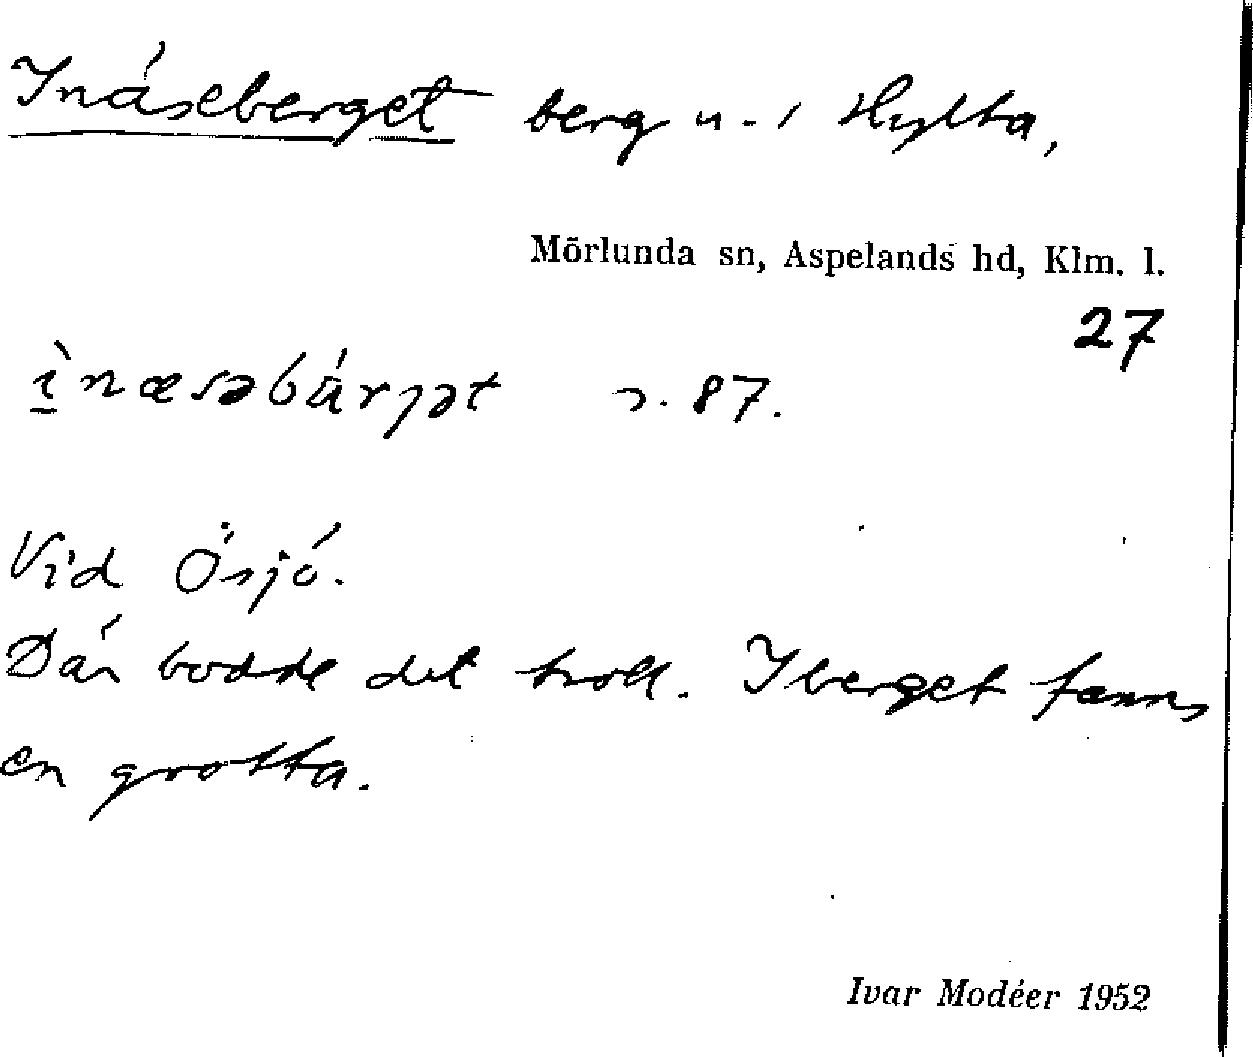 Inäseberget berg u. i Hylta,
Mörlunda sn, Aspelands hd, Klm. l.
27
ìnæsəbä́rjət s. 87.
Vid Ösjö.
Där bodde det troll. I berget fanns
en grotta.
Ivar Modéer 1952